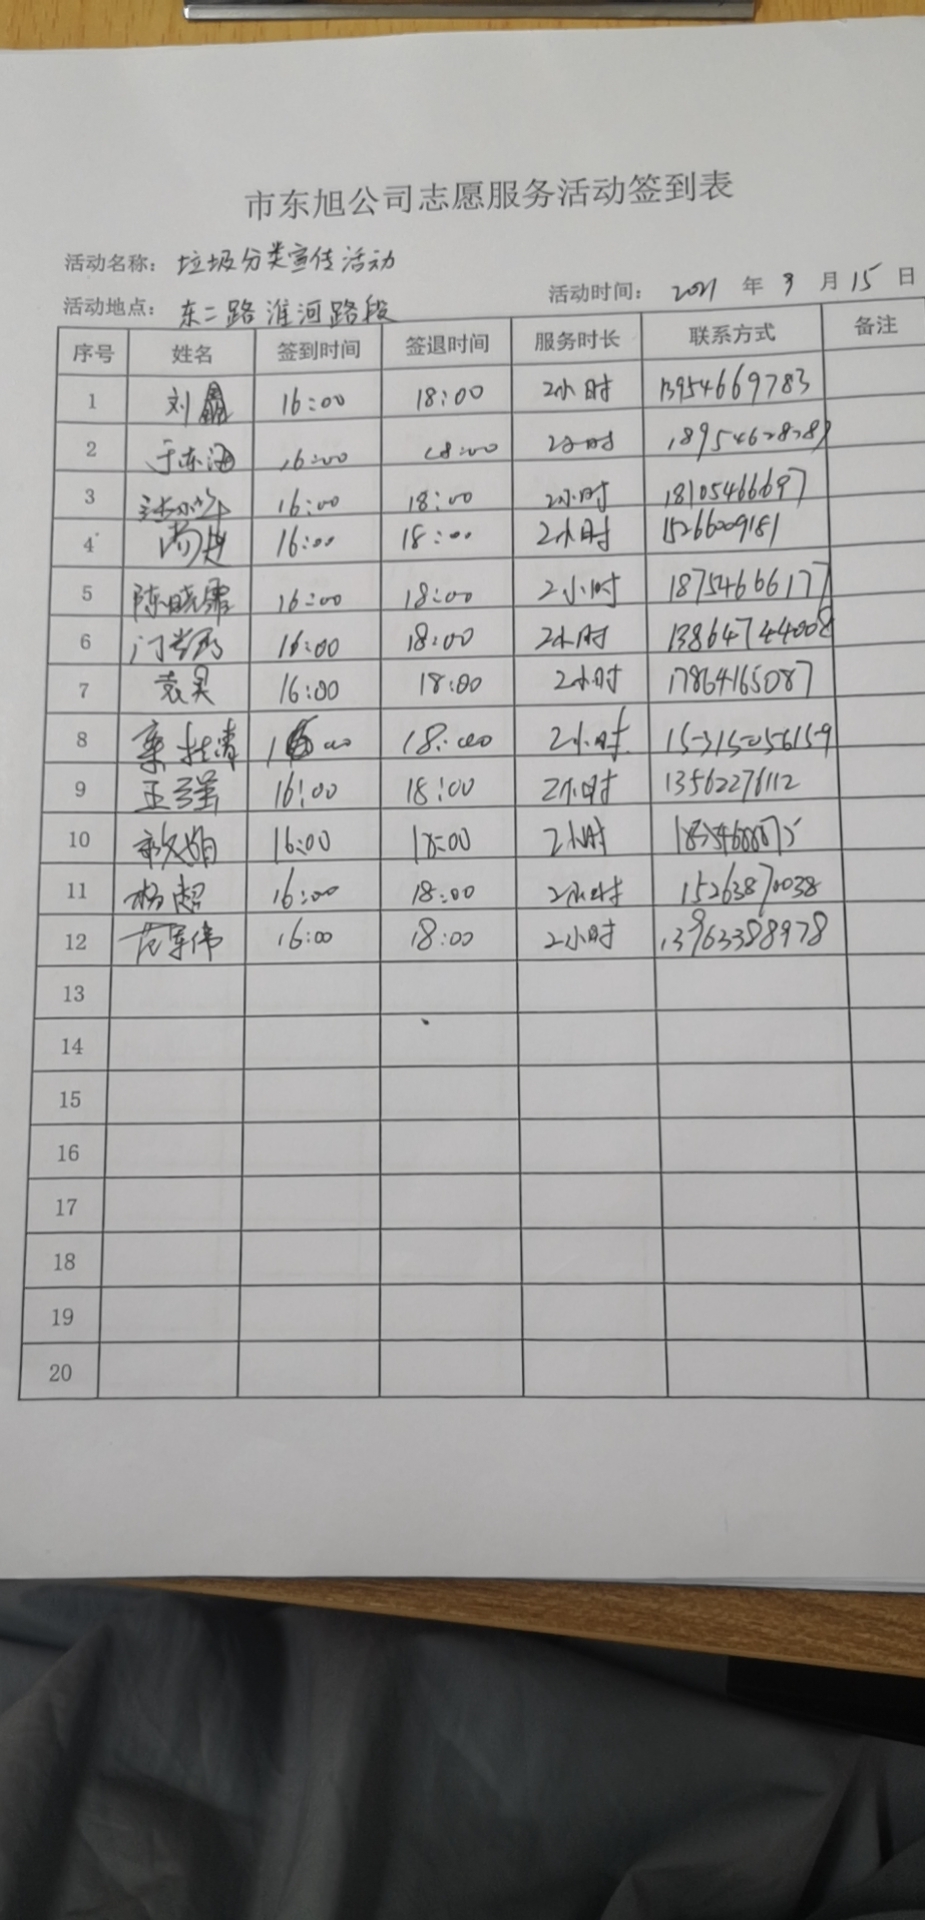 市东旭公司志愿服务活动签到表
活动名称: 垃圾分类宣传活动
活动地点: 东二路淮河路段 活动时间: 2021 年 3 月 15 日
序号 姓名 签到时间 签退时间 服务时长 联系方式 备注
1 刘鑫 16:00 18:00 2小时 13954669783
2 于东海 16:00 18:00 2小时
3 16:00 18:00 2小时 18105466697
4 尚赵 16:00 18:00 2小时 1526609181
5 陈晓霏 16:00 18:00 2小时 18754666177
6 16:00 18:00 2小时 13864744008
7 袁昊 16:00 18:00 2小时 17864165087
8 18:00 2小时 15315056159
9 王强 16:00 18:00 2小时 13562276112
10 16:00 18:00 2小时
11 杨超 16:00 18:00 2小时 15263870038
12 范军伟 16:00 18:00 2小时 13963388978
13
14
15
16
17
18
19
20